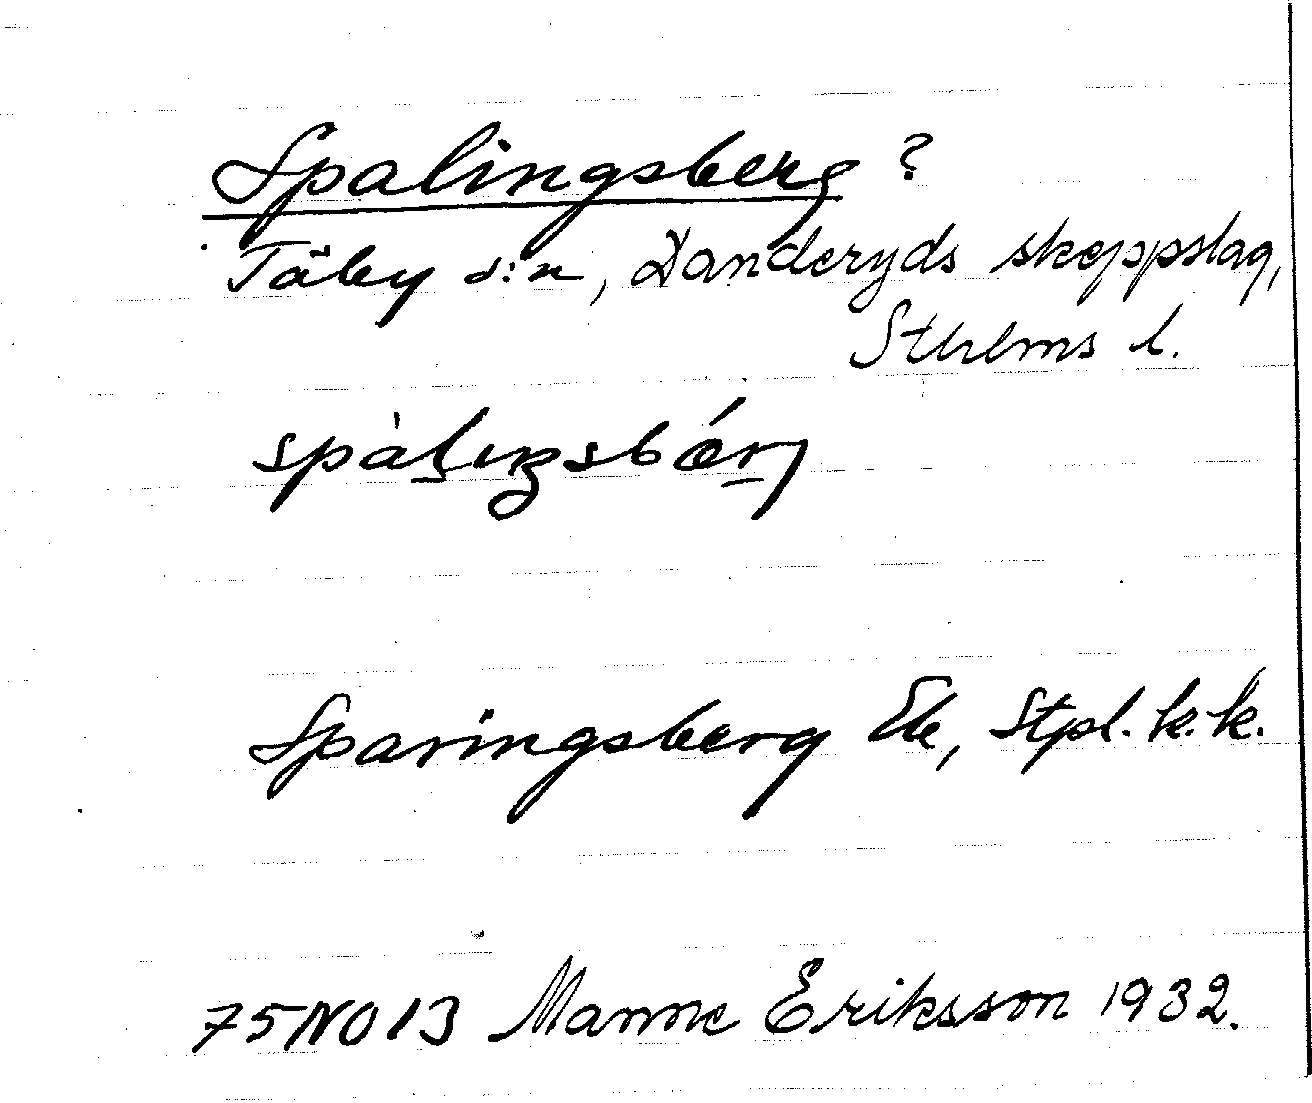 Spalingsberg ?
Täby s:n, Danderyds skeppslag,
Sthlms l.
spàlıŋsbǽrj
Sparingsberg Ek, Stpl. k.k.
75NO13 Manne Eriksson 1932.